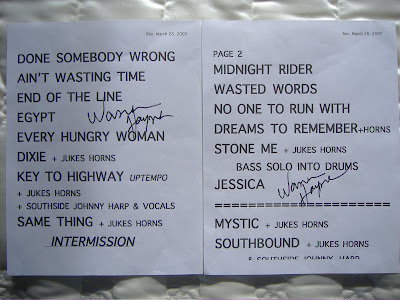 Rev. March 26, 2007
DONE SOMEBODY WRONG
AIN'T WASTING TIME
END OF THE LINE
EGYPT
Warren Haynes
EVERY HUNGRY WOMAN
DIXIE + JUKES HORNS
KEY TO HIGHWAY UPTEMPO
+ JUKES HORNS
+ SOUTHSIDE JOHNNY HARP & VOCALS
SAME THING + JUKES HORNS
...INTERMISSION
Rev. March 26, 2007
PAGE 2
MIDNIGHT RIDER
WASTED WORDS
NO ONE TO RUN WITH
DREAMS TO REMEMBER+HORNS
STONE ME + JUKES HORNS
BASS SOLO INTO DRUMS
JESSICA
Warren Haynes
==================================
MYSTIC + JUKES HORNS
SOUTHBOUND + JUKES HORNS
& SOUTHSIDE JOHNNY HARP